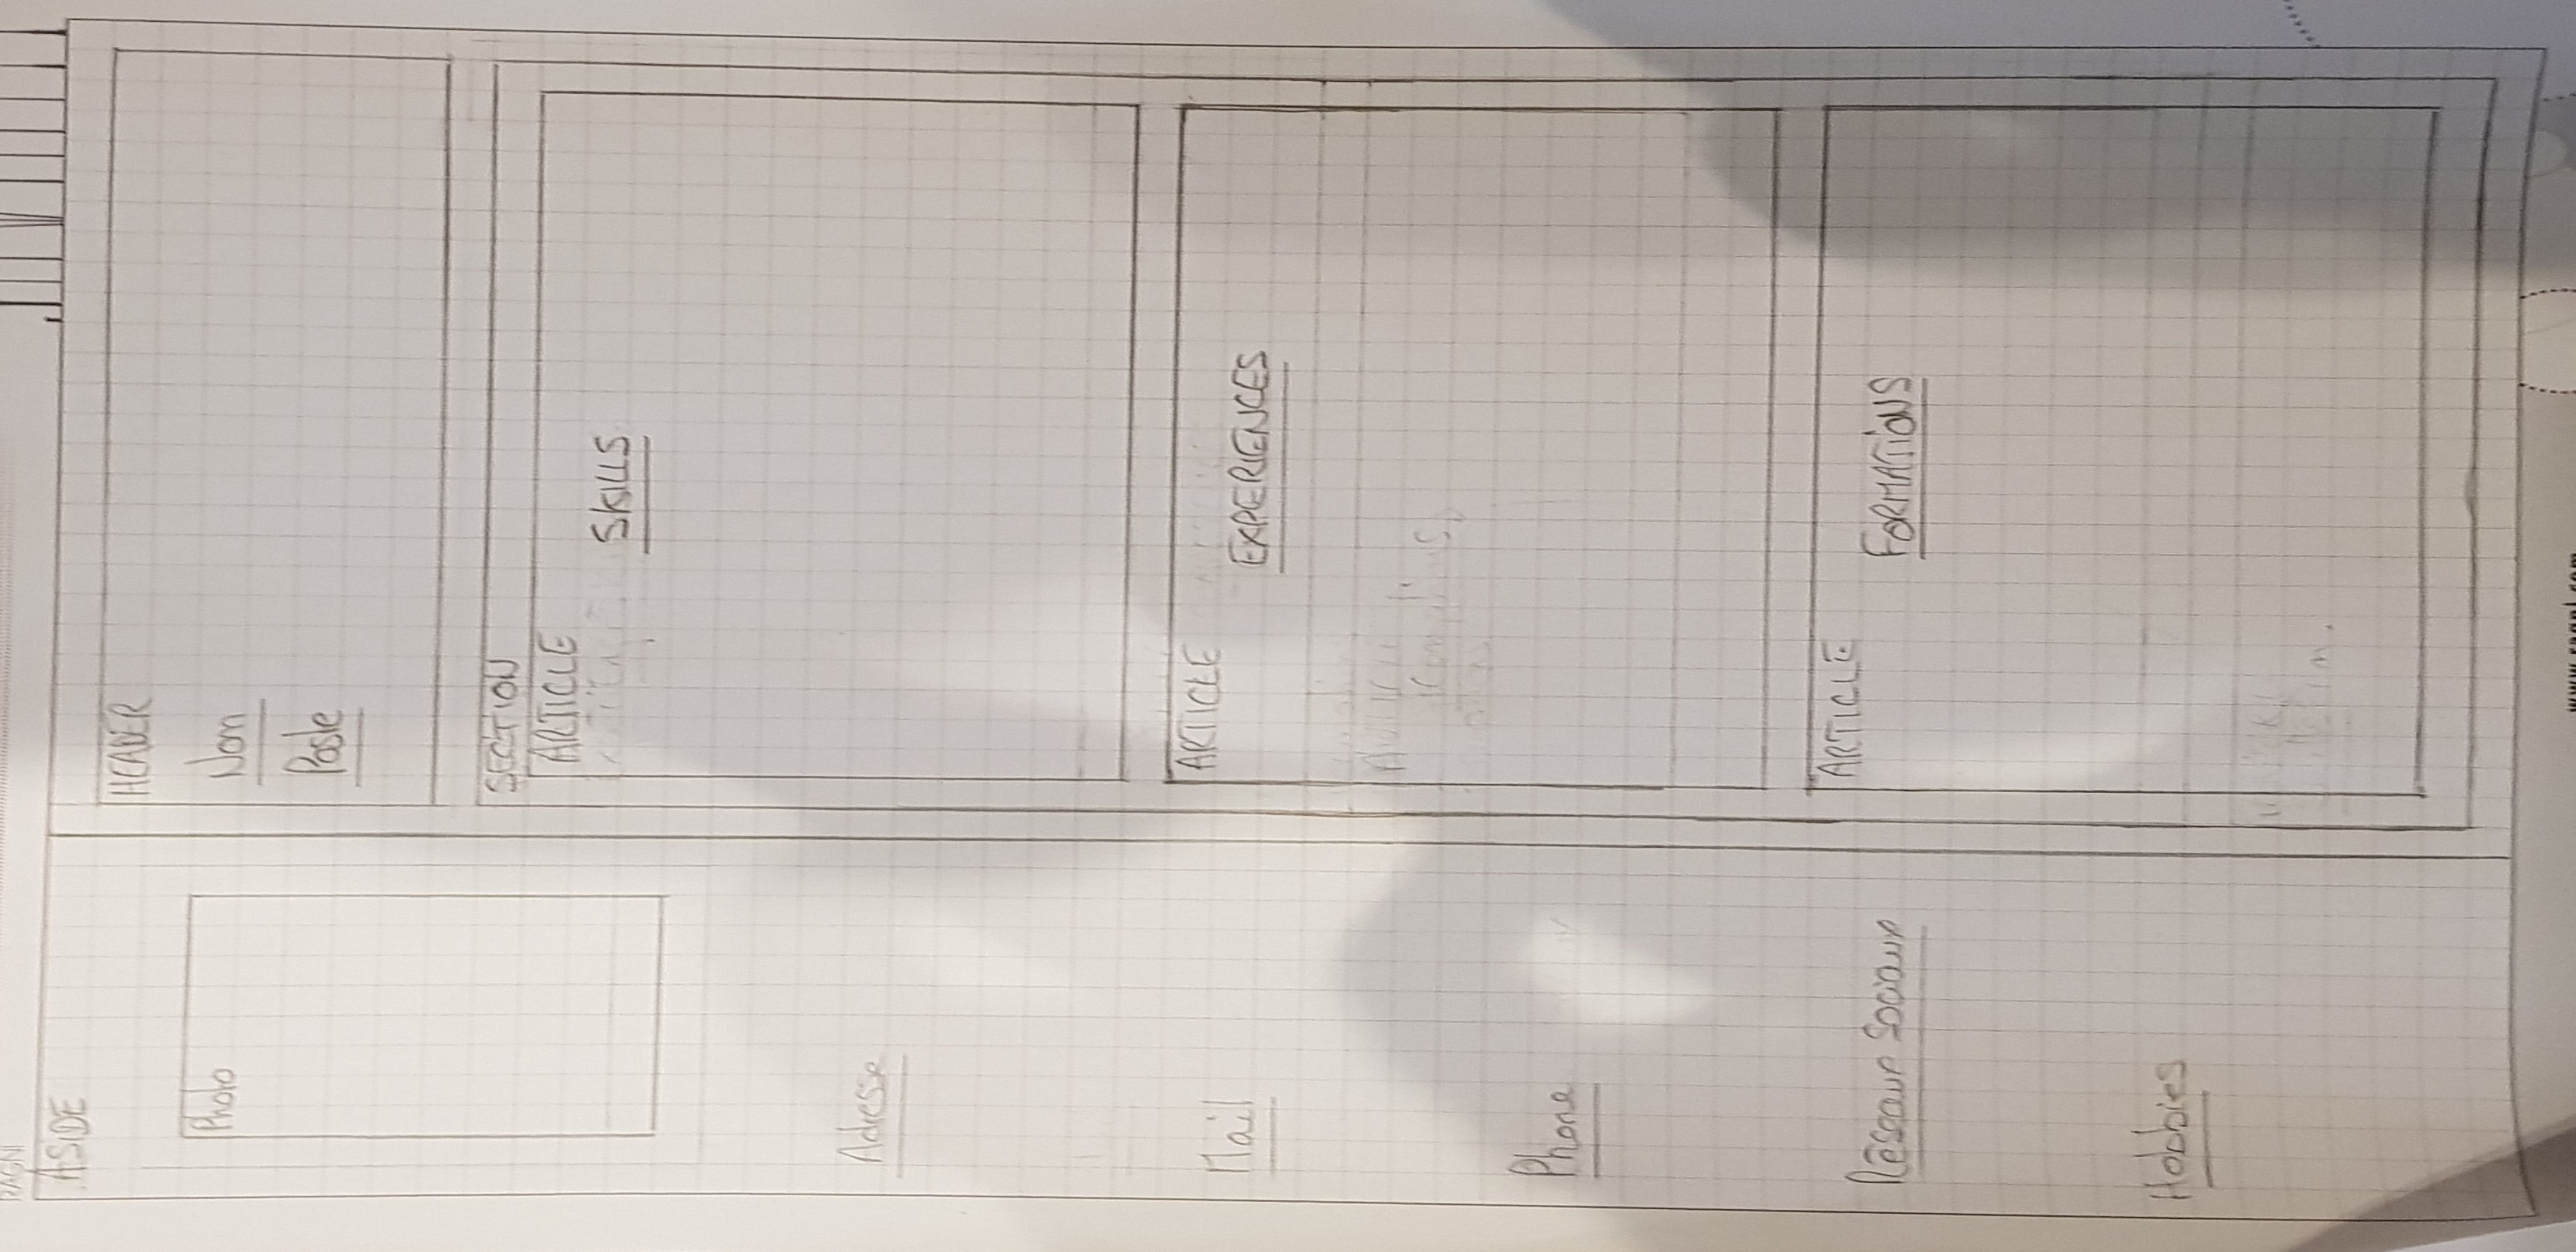 RAGNI
ASIDE
Photo
Adresse
Mail
Phone
Réseaux Sociaux
Hobbies
HEADER
Nom
Poste
SECTION
ARTICLE
SKILLS
ARTICLE
EXPERIENCES
ARTICLE
FORMATIONS
www.ragni.com